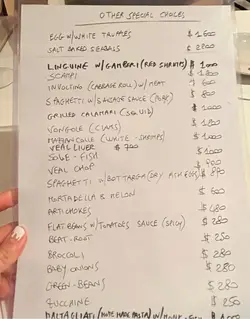 OTHER SPECIAL CHOICES
EGG W/WHITE TRUFFLES $ 1600
SALT BAKED SEABASS $ 2200
LINGUINE W/GAMBERI (RED SHRIMPS) $ 1000
SCAMPI
INVOLTINO (CABBAGE ROLL) W/ MEAT $ 600
SPAGHETTI W/SAUSAGE SAUCE (PORK) $ 800
GRILLED CALAMARI (SQUID) $ 1000
VONGOLE (CLAMS) $ 1000
MAZZANCOLLE (WHITE-SHRIMPS) $ 1000
VEAL LIVER $ 700
SOLE-FISH $ 1000
VEAL CHOP $ 900
SPAGHETTI W/BOTTARGA (DRY FISH EGGS) $
MORTADELLA & MELON $ 600
ARTICHOKES $ 480
FLAT BEANS W/TOMATOES SAUCE (SPICY) $ 280
BEAT-ROOT $ 250
BROCCOLI $ 280
BABY ONIONS $ 280
GREEN-BEANS $ 280
ZUCCHINE $ 250
MALTAGLIATI (HOME MADE PASTA) W/